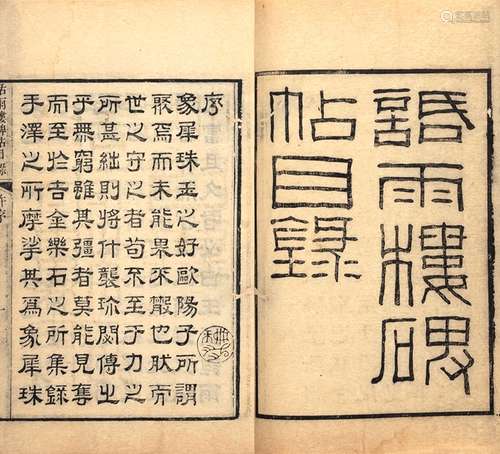 話雨樓碑
帖目錄
序
象犀珠玉之好歐陽子所謂
聚焉而未能果不厭也肰而
世之守之者苟不至于力之
所甚絀則將什襲珍閟傳之
乎無窮雖其彊者莫能見奪
而至於吉金樂石之所集錄
手澤之所摩挲其為象犀珠
話雨樓碑帖目錄 序 一